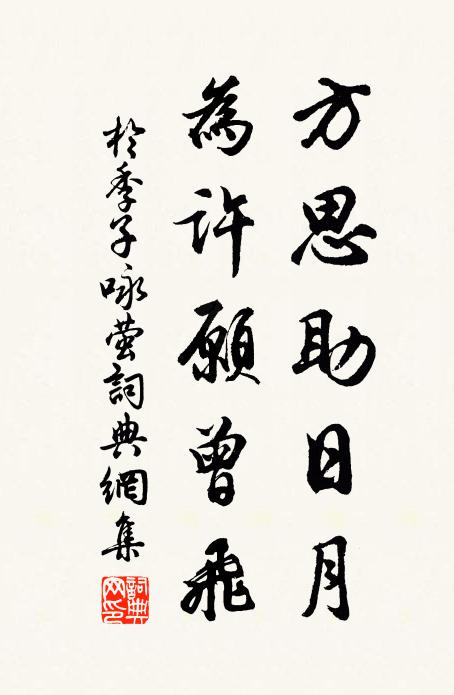 方思助日月
為許願曾飛
於季子咏螢詞典網集
詞典網印